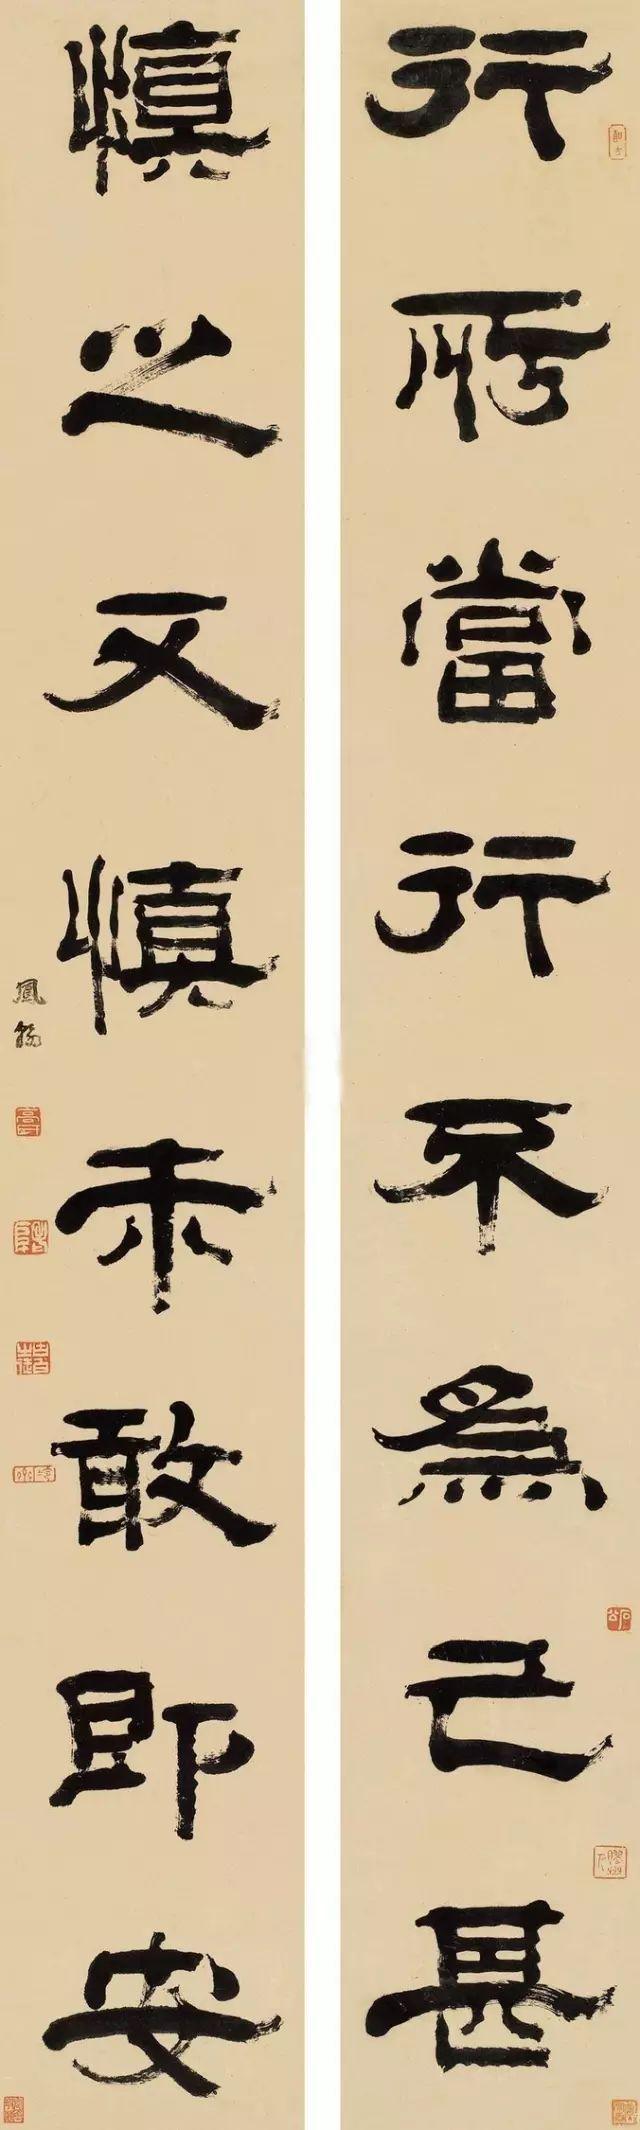 行所當行不為已甚
慎之又慎未敢即安
鳳翰
膠州